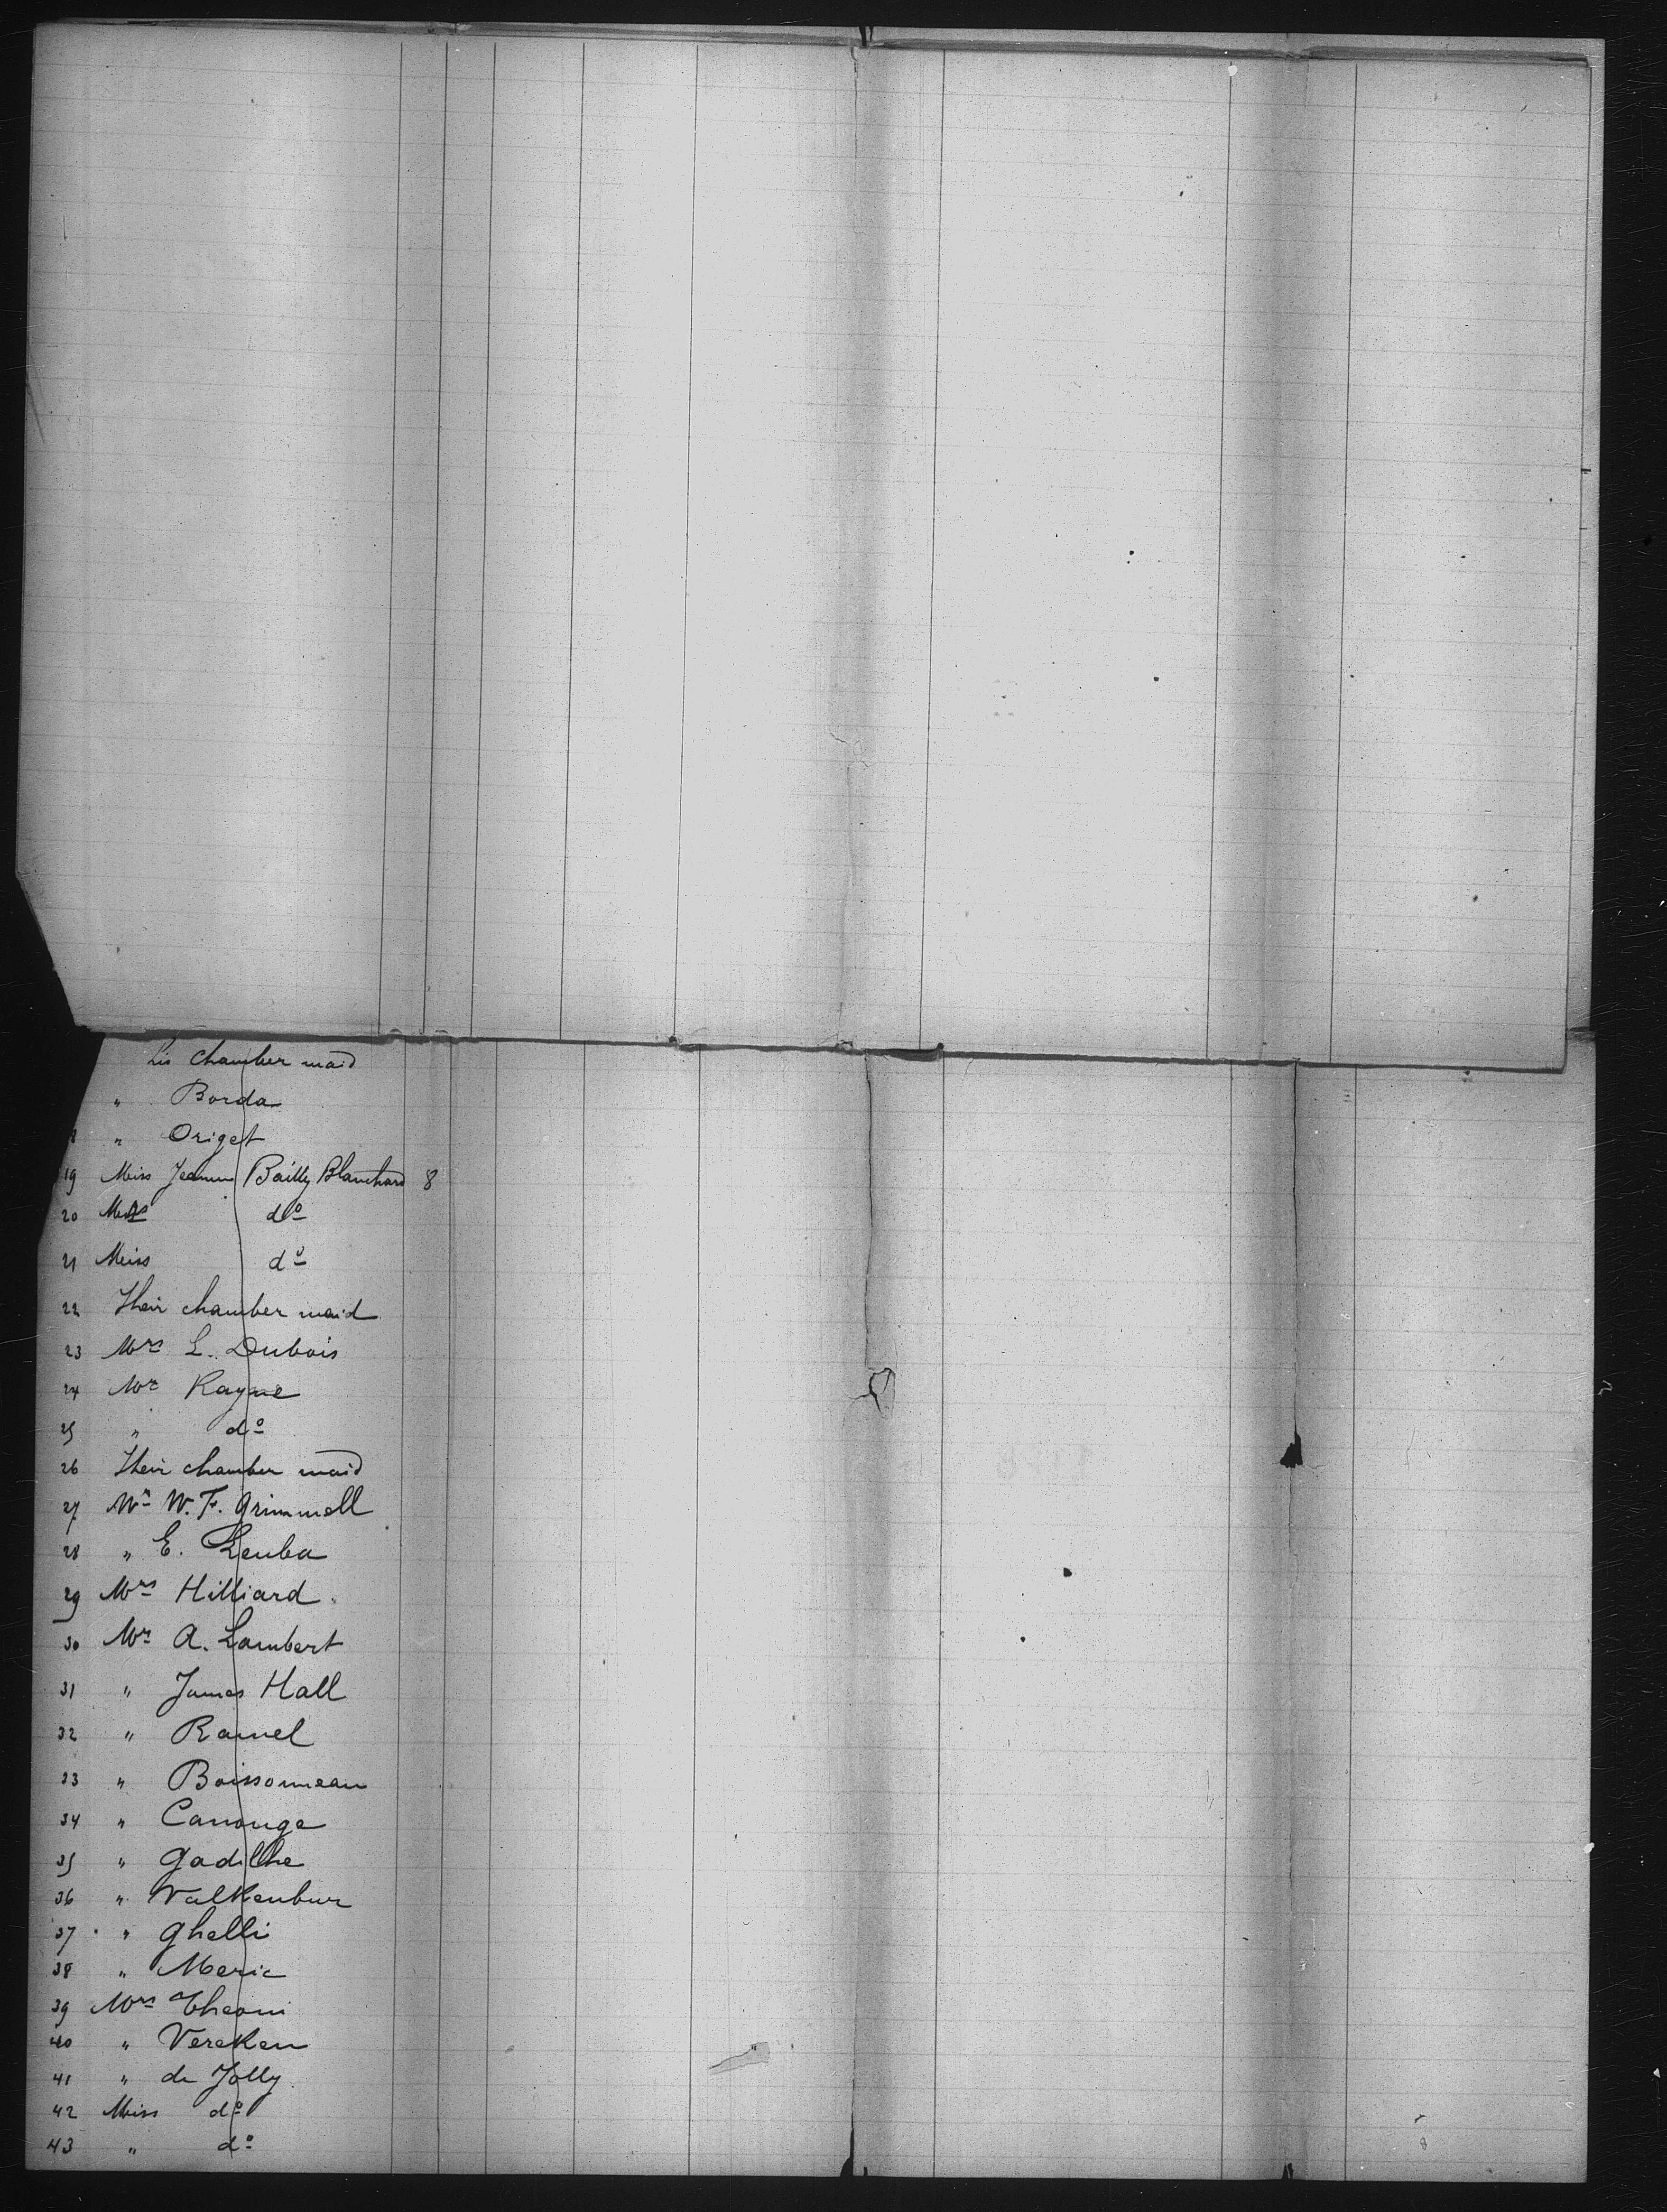 his chamber maid
" Borda
8 " Origet
19 Miss Jeanne Bailly Blanchard 8
20 Mrs do
21 Miss do
22 Their chamber maid
23 Mrs L. Dubois
24 Mr Kayne
25 " do
26 Their chamber maid
27 Mr W. F. Grimmell
28 " E. Leuba
29 Mrs Hilliard
30 Mr A. Lambert
31 " James Hall
32 " Ramel
33 " Boissonneau
34 " Canonge
35 " Gadilhe
36 " Valkenbur
37 " Ghelli
38 " Meric
39 Mrs Theoni
40 " Vereken
41 " de Jolly
42 Miss do
43 " do